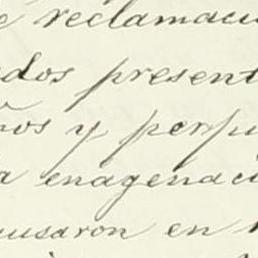 e reclamació
ados present
ños y perju
a enagenaci
ausaron en